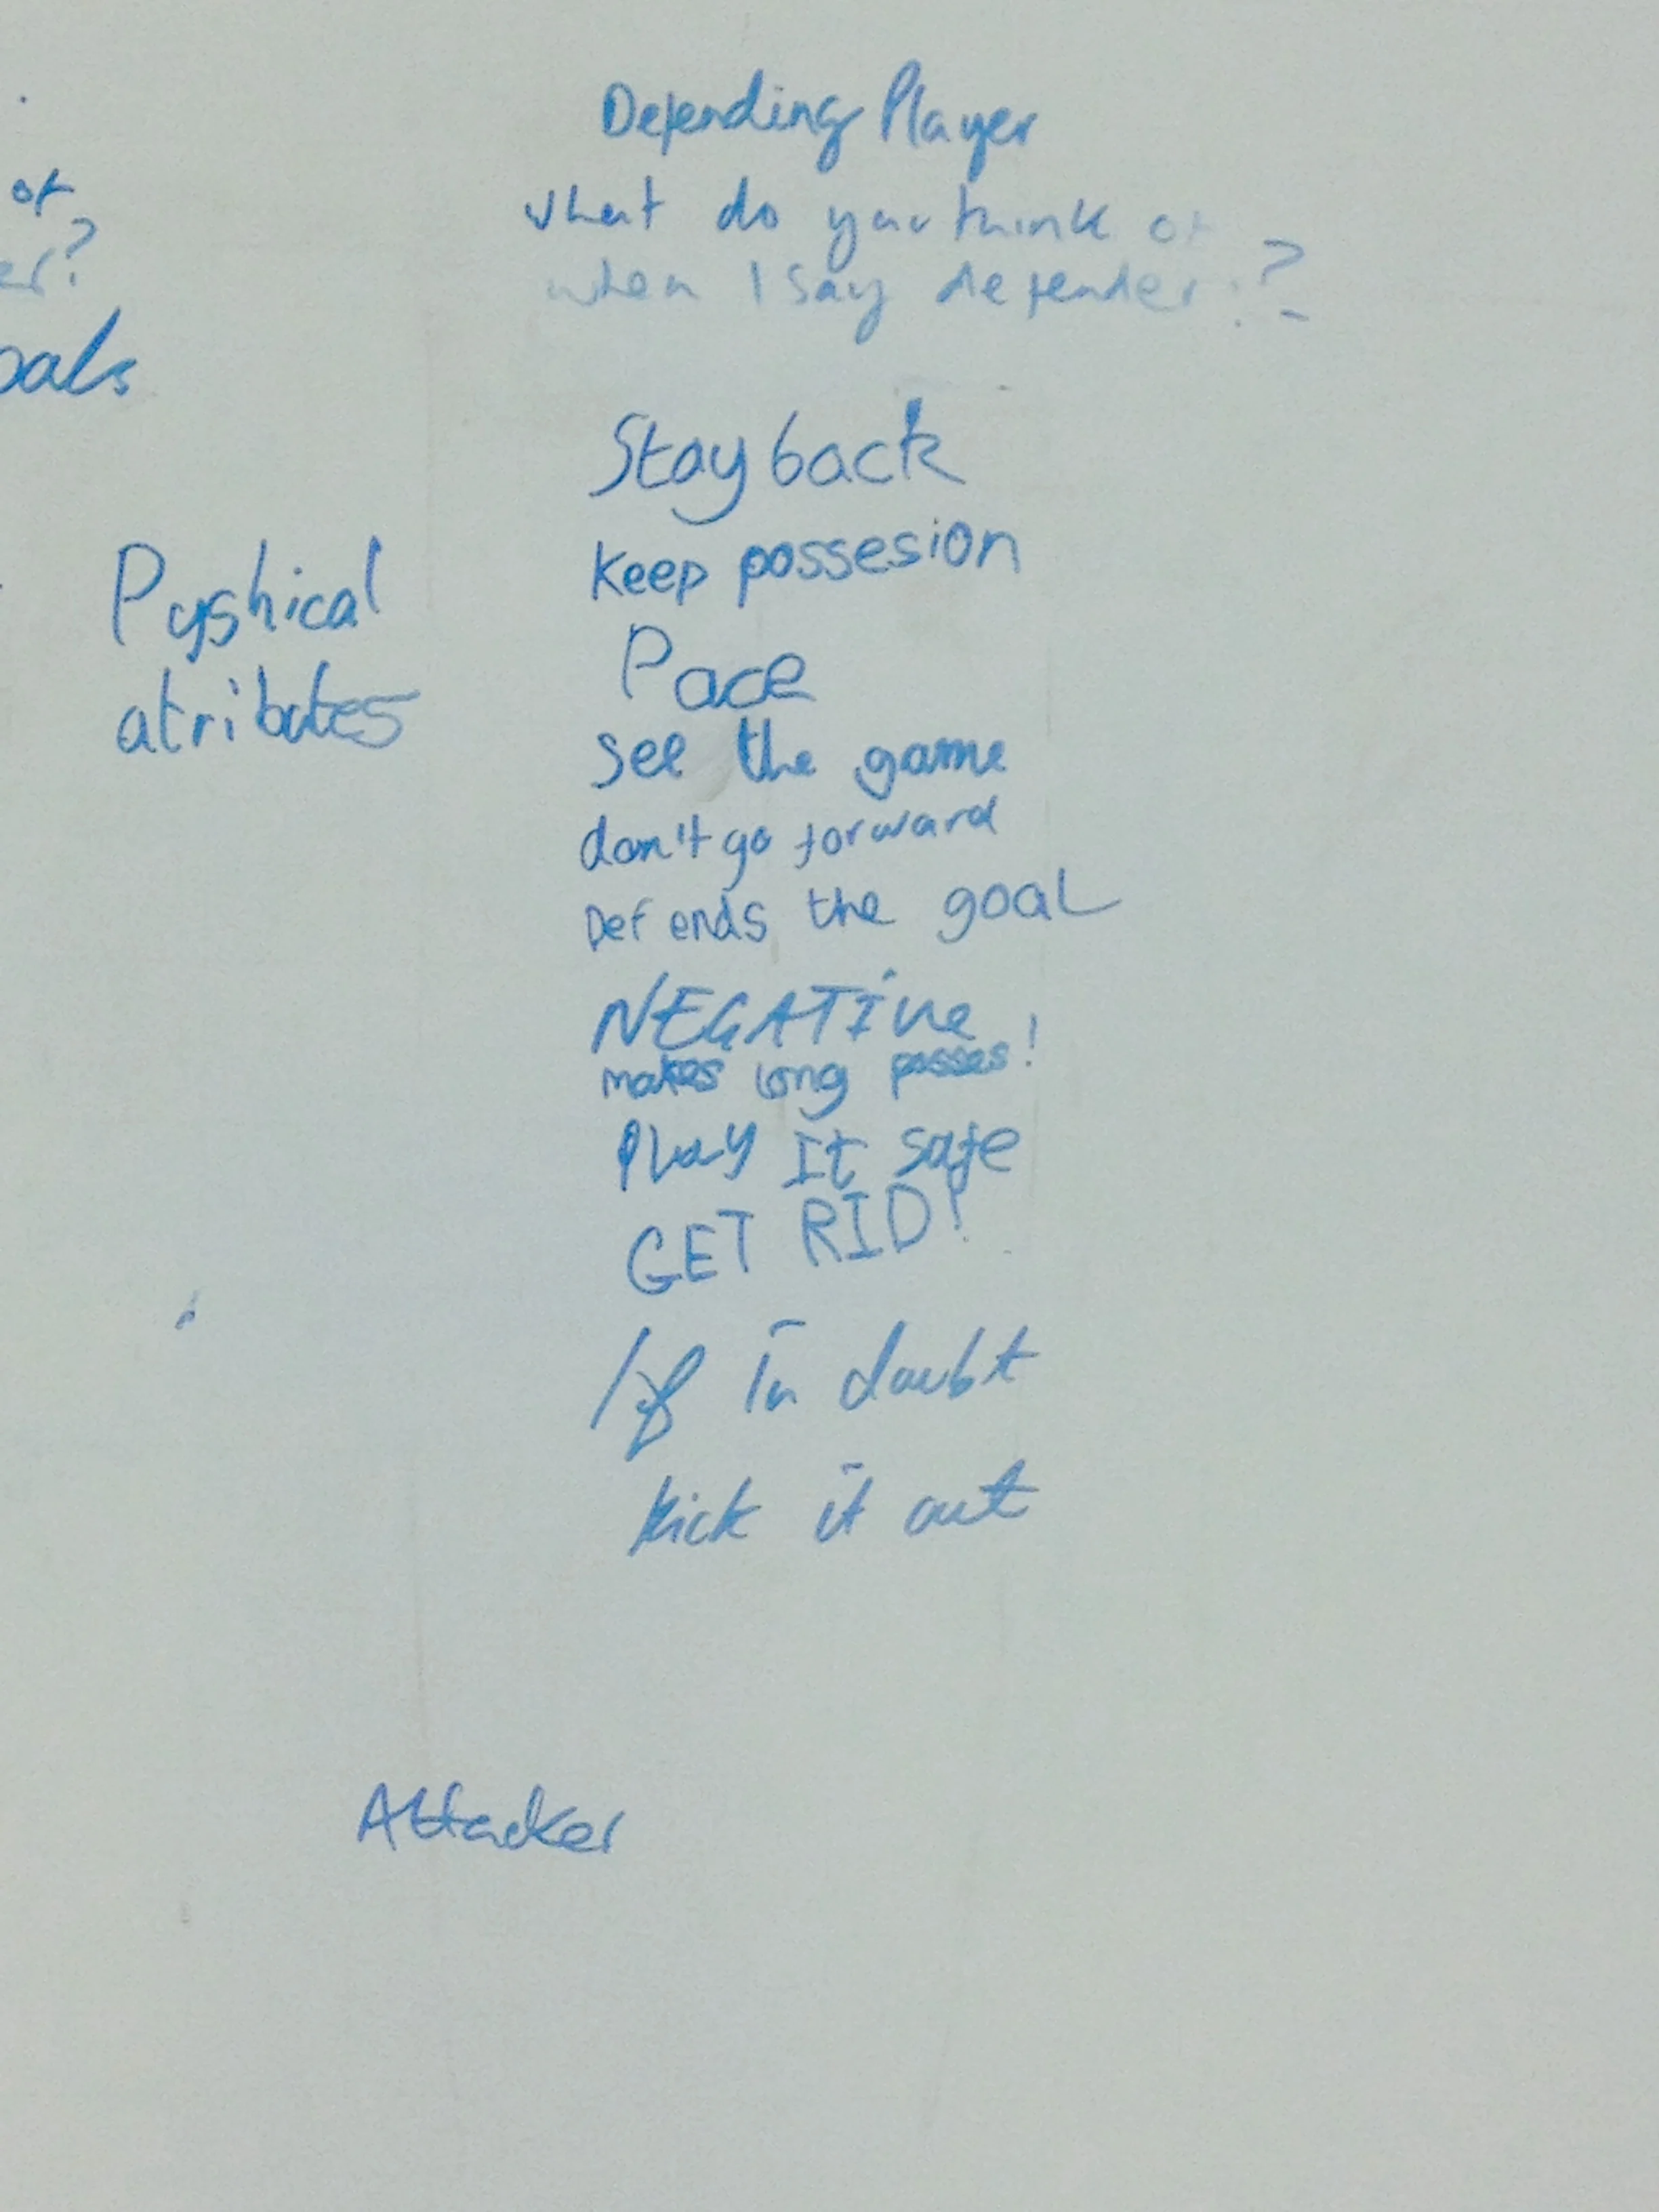 of
er?
oals
Pyshical
atributes
Defending Player
what do you think of
when I say defender?
Stay back
keep possesion
Pace
see the game
don't go forward
Defends the goal
NEGATIve
makes long passes!
Play It safe
GET RID!
If in doubt
kick it out
Attacker